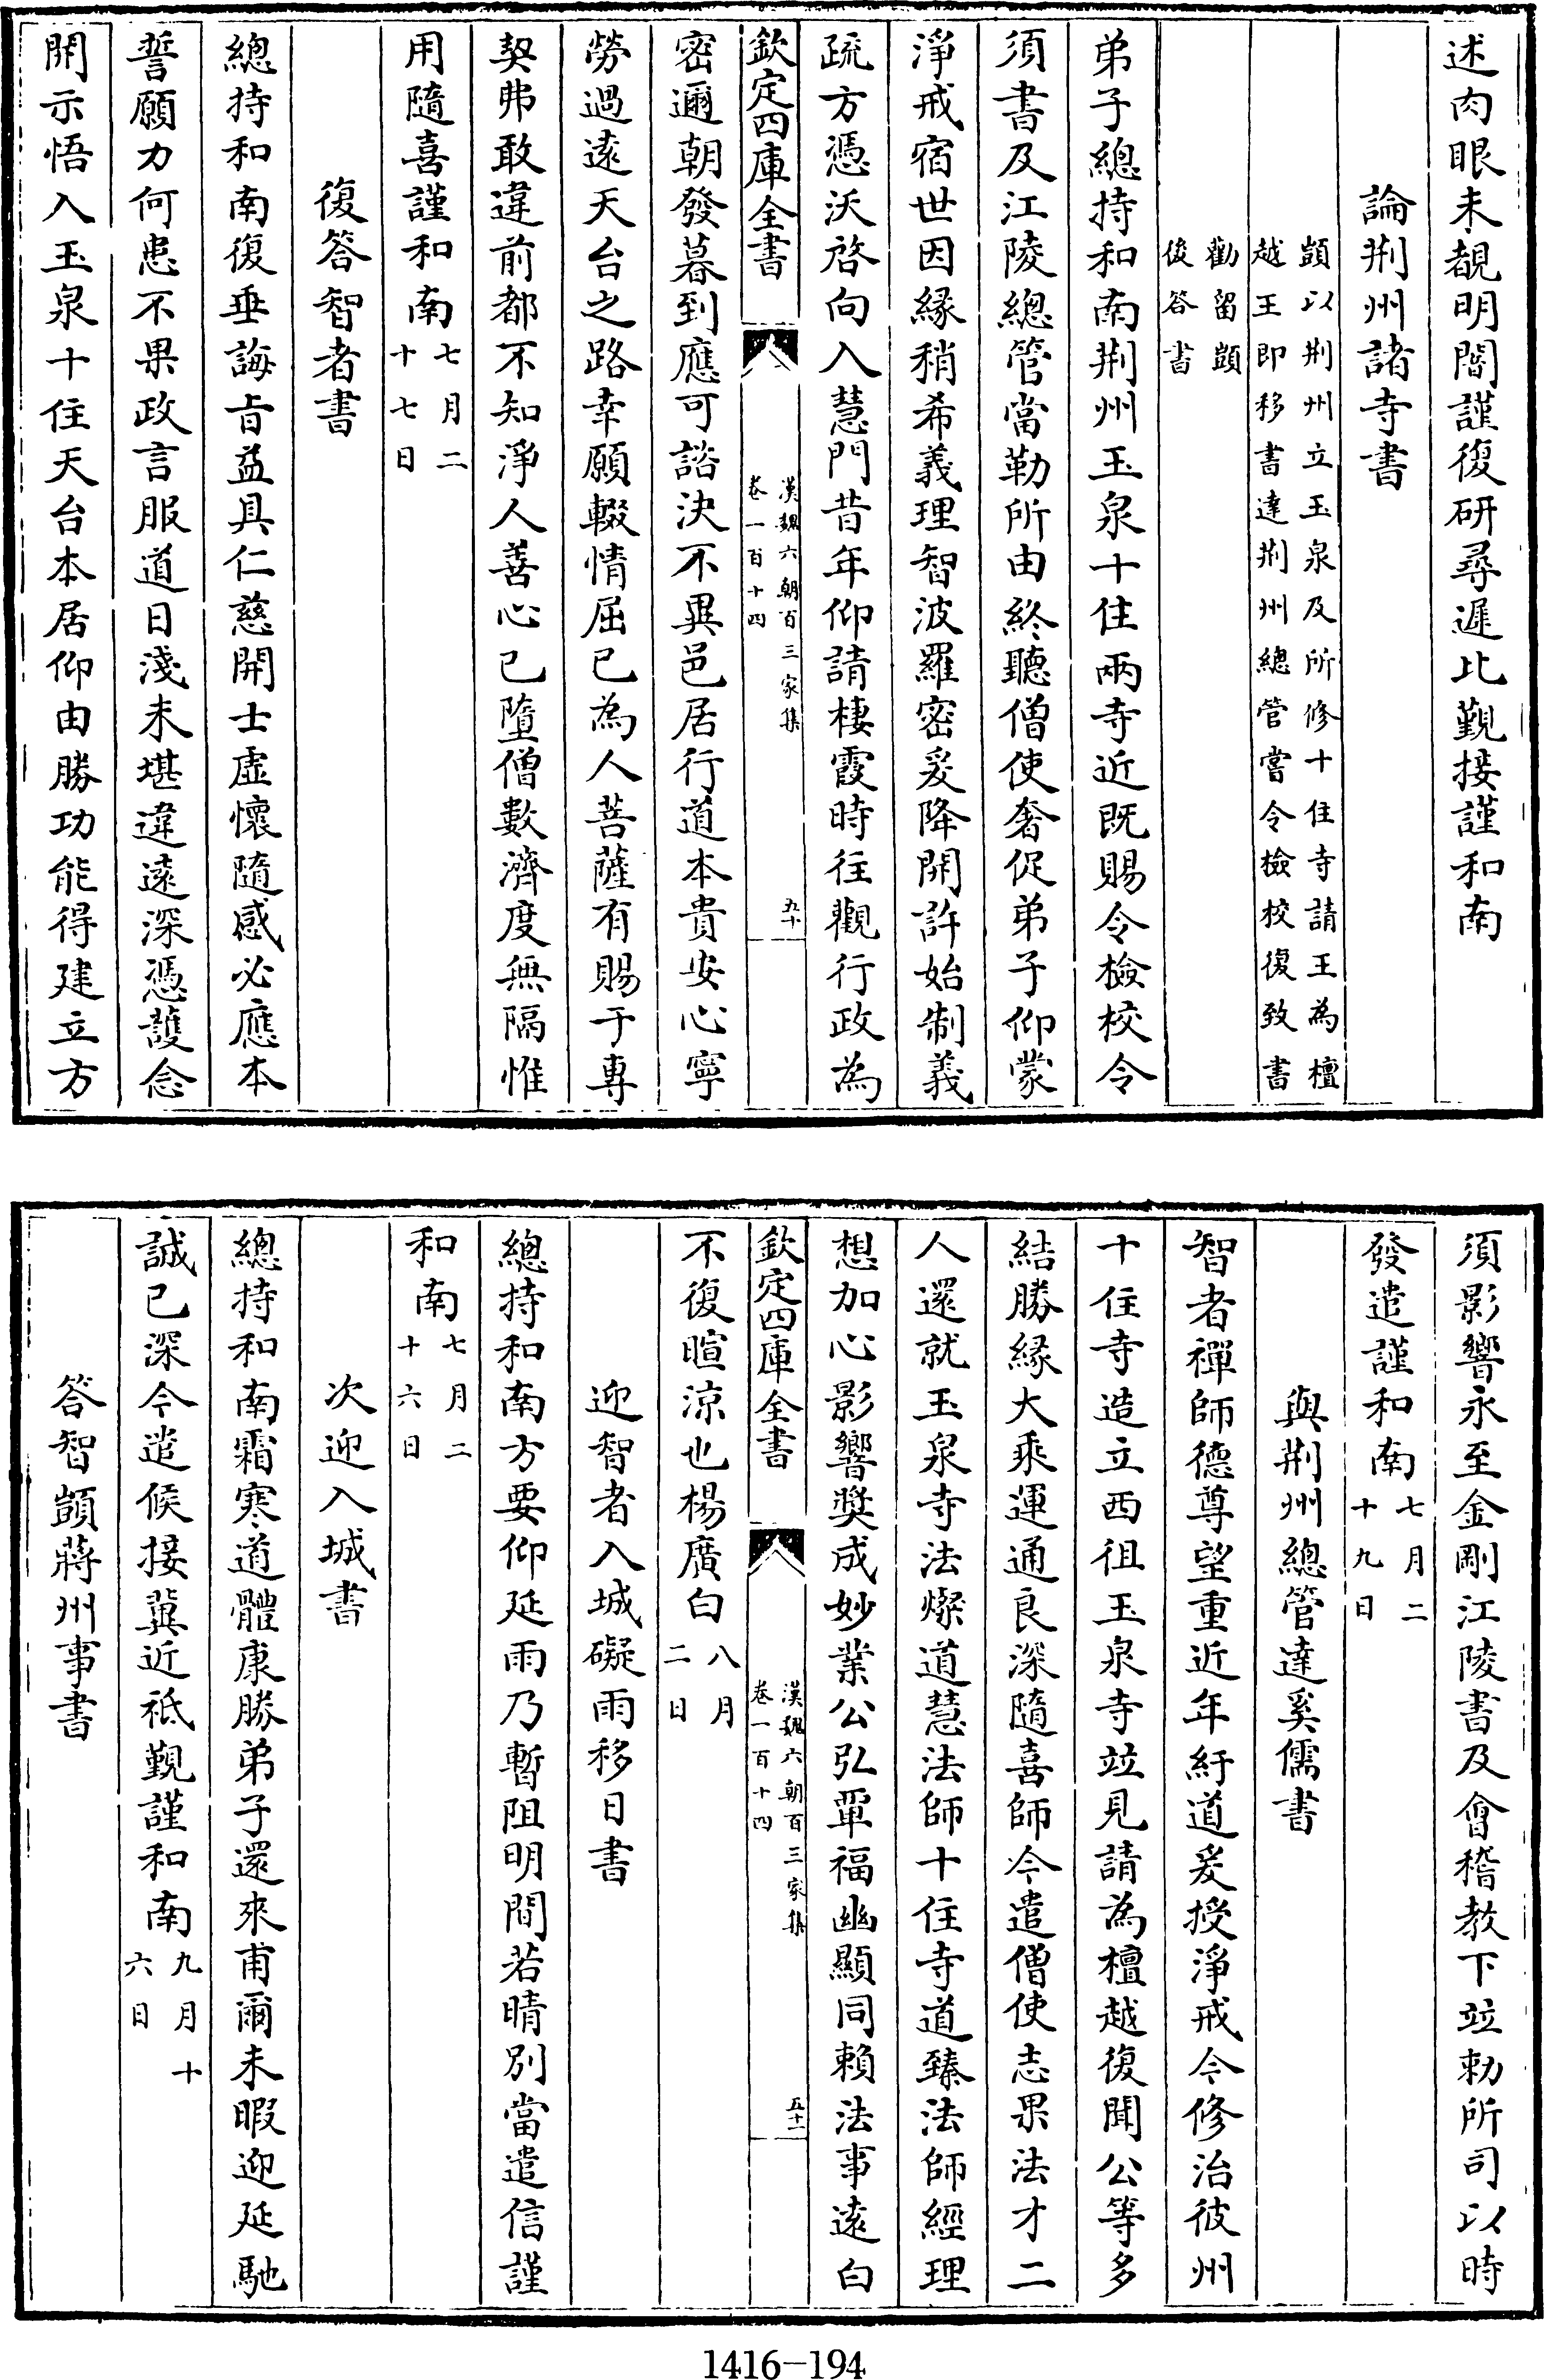 述肉眼未覩明闇謹復研尋遲比覲接謹和南
論荆州諸寺書
顗以荆州立玉泉及所修十住寺請王為檀
越王即移書達荆州總管嘗令檢校復致書
勸留顗
後答書
弟子總持和南荆州玉泉十住兩寺近既賜令檢校令
須書及江陵總管當勒所由終聽僧使奢促弟子仰蒙
淨戒宿世因緣稍希義理智波羅密爰降開許始制義
疏方憑沃啓向入慧門昔年仰請棲霞時往觀行政為
欽定四庫全書
漢魏六朝百三家集
卷一百十四
九十
密邇朝發暮到應可諮決不異邑居行道本貴安心寧
勞過遠天台之路幸願輟情屈已為人菩薩有賜于專
契弗敢違前都不知淨人善心已墮僧數濟度無隔惟
用隨喜謹和南
七月二
十七日
復答智者書
總持和南復垂誨旨益具仁慈開士虛懷隨感必應本
誓願力何患不果政言服道日淺未堪違遠深憑護念
開示悟入玉泉十住天台本居仰由勝功能得建立方
須影響永至金剛江陵書及會稽教下竝勅所司以時
發遣謹和南
七月二
十九日
與荆州總管達奚儒書
智者禪師德尊望重近年紆道爰授淨戒今修治彼州
十住寺造立西徂玉泉寺竝見請為檀越復聞公等多
結勝緣大乘運通良深隨喜師今遣僧使志果法才二
人還就玉泉寺法燦道慧法師十住寺道臻法師經理
想加心影響獎成妙業公弘覃福幽顯同賴法事遠白
欽定四庫全書
漢魏六朝百三家集
卷一百十四
五十一
不復暄涼也楊廣白
八月
二日
迎智者入城礙雨移日書
總持和南方要仰延雨乃暫阻明間若晴別當遣信謹
和南
七月二
十六日
次迎入城書
總持和南霜寒道體康勝弟子還來甫爾未暇迎延馳
誠已深今遣候接冀近祗覲謹和南
九月十
六日
答智顗蔣州事書
1416-194